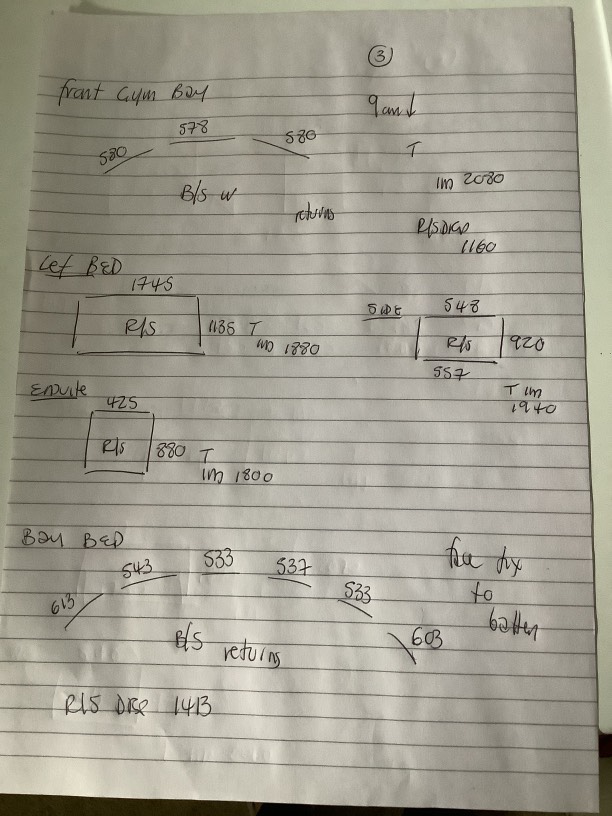 3
front Gym Bay
9am↓
578
580
580
T
B/S w
1m 2080
returns
R/S DROP
1160
Lef BED
1745
R/S
1135 T
1m 1880
SIDE
548
R/s
920
557
T 1m
1940
Ensuite
425
R/s
880 T
1m 1800
Bay BED
613
543
533
537
533
603
B/S returns
face fix
to
batten
R/S DROP 1413